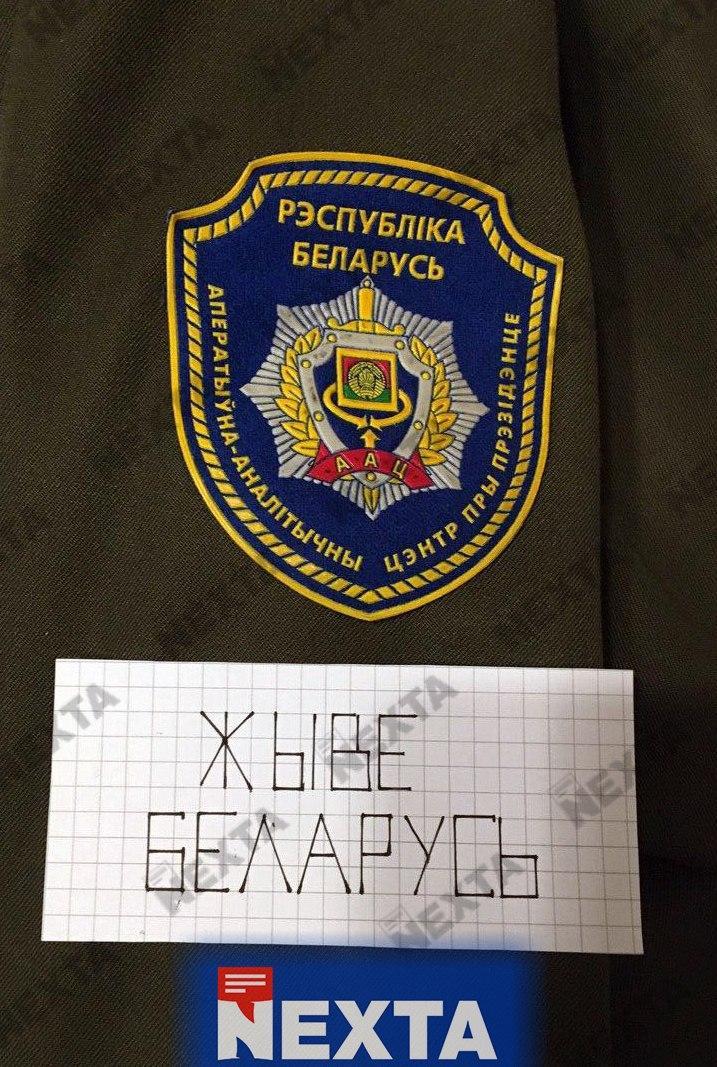 РЭСПУБЛІКА
БЕЛАРУСЬ
АПЕРАТЫЎНА-АНАЛІТЫЧНЫ ЦЭНТР ПРЫ ПРЭЗІДЭНЦЕ
А А Ц
ЖЫВЕ
БЕЛАРУСЬ
NEXTA